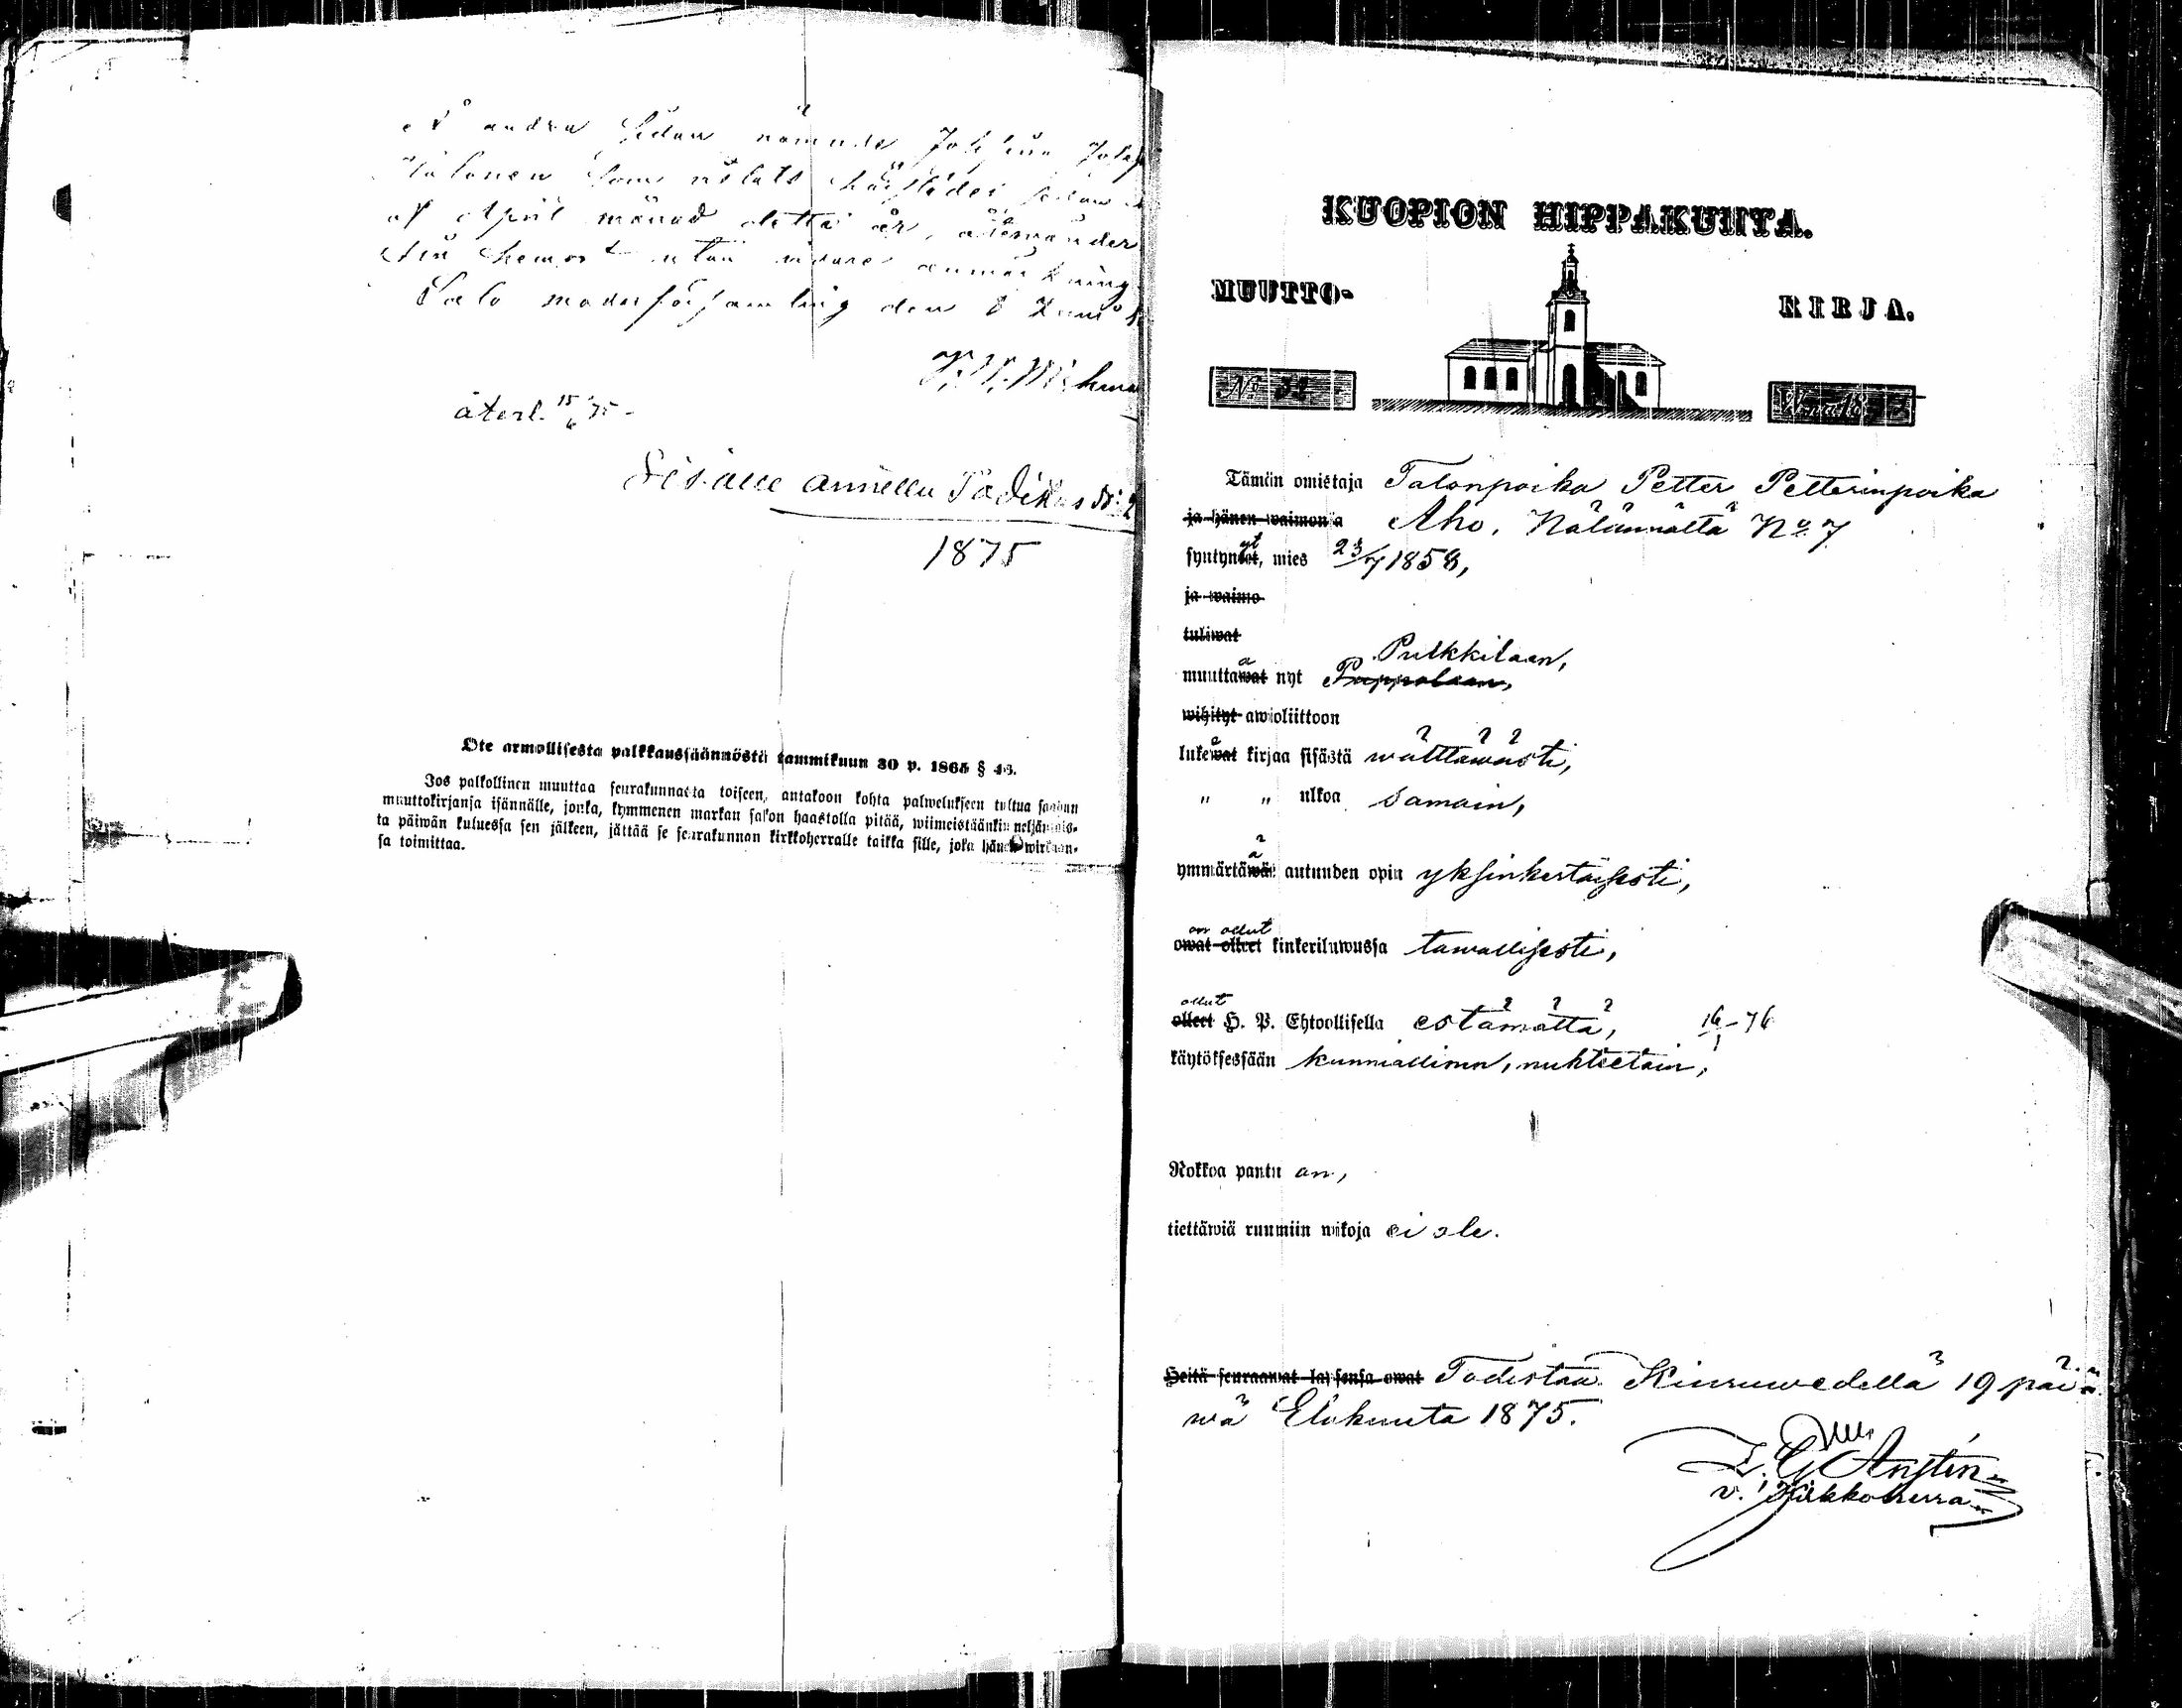 å andra sidan nämnde Johan
som vistats härstädes sedan
af April månad detta år, återvänder
hemort utan vidare anmärkning
Salo moderförsamling den 8 Juni
återl. 15/6 75-
Sisälle annettu Todistus No 2
1875
Ote armollisesta palkkaussäännöstä tammikuun 30 p. 1865 § 43.
Jos palkollinen muuttaa seurakunnasta toiseen, antakoon kohta palwelukseen tultua saadun
muuttokirjansa isännälle, jonka, kymmenen markan sakon haastolla pitää, wiimeistäänkin neljännis-
ta päiwän kuluessa sen jälkeen, jättää se seurakunnan kirkkoherralle taikka sille, joka hänen wirkaan-
sa toimittaa.
KUOPION HIPPAKUNTA.
MUUTTO-
KIRJA.
No 32
W. na 18
Tämän omistaja Talonpoika Petter Petterinpoika
ja hänen waimonsa Aho, Nälännältä No 7
syntynyt, mies 23/7 1858,
ja waimo
tuliwat
Pulkkilaan,
muuttawat a nyt Pippolaan,
wihityt awioliittoon
lukewat a kirjaa sisästä wälttäwästi,
" " ulkoa samoin,
ymmärtäwät ä autuuden opin yksinkertaisesti,
on ollut
owat olleet kinkeriluwussa tawallisesti,
ollut
olleet H. P. Ehtoollisella estämättä, 16/1-76
käytöksessään kunniallinen, nuhteetoin,
Rokkoa pantu on,
tiettäwiä ruumiin wikoja ei ole.
Heitä seuraawat lapsensa owat Todistaa Kiuruwedellä 19 päi-
wä Elokuuta 1875.
v. Kirkkoherra